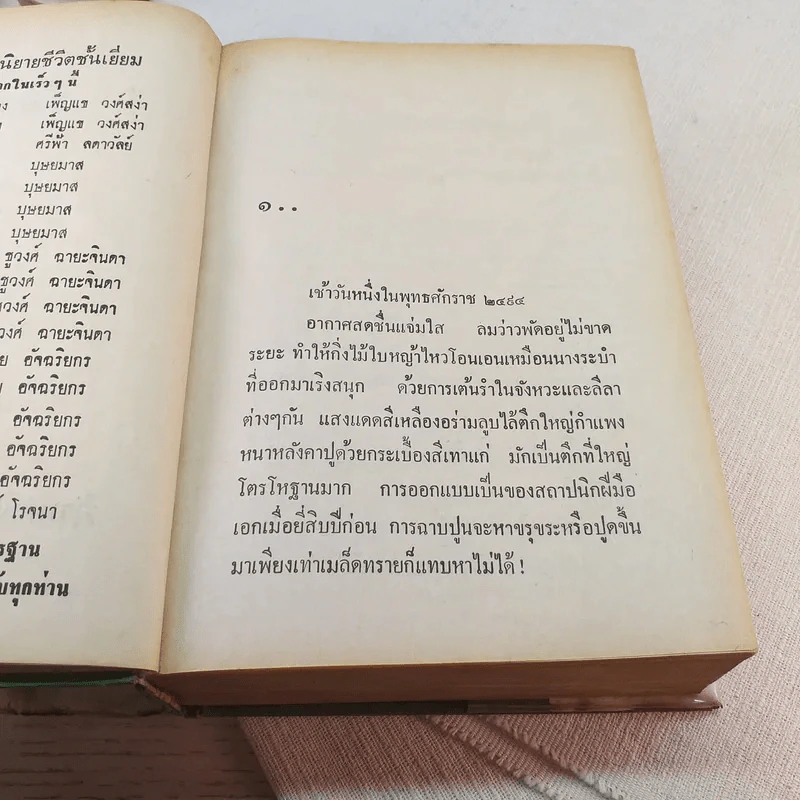 นิยายชีวิตชั้นเยี่ยม
เร็วๆนี้
เพ็ญแข วงศ์สง่า
เพ็ญแข วงศ์สง่า
ศรีฟ้า ลดาวัลย์
บุษยมาส
บุษยมาส
บุษยมาส
บุษยมาส
ชูวงศ์ ฉายะจินดา
ชูวงศ์ ฉายะจินดา
ชูวงศ์ ฉายะจินดา
ชูวงศ์ ฉายะจินดา
อัจฉริยกร
อัจฉริยกร
อัจฉริยกร
อัจฉริยกร
อัจฉริยกร
โรจนา
ทุกท่าน
๑..
เช้าวันหนึ่งในพุทธศักราช ๒๔๙๔
อากาศสดชื่นแจ่มใส ลมว่าวพัดอยู่ไม่ขาด
ระยะ ทำให้กิ่งไม้ใบหญ้าไหวโอนเอนเหมือนนางระบำ
ที่ออกมาเริงสนุก ด้วยการเต้นรำในจังหวะและลีลา
ต่างๆกัน แสงแดดสีเหลืองอร่ามลูบไล้ตึกใหญ่กำแพง
หนาหลังคาปูด้วยกระเบื้องสีเทาแก่ มักเป็นตึกที่ใหญ่
โตรโหฐานมาก การออกแบบเป็นของสถาปนิกฝีมือ
เอกเมื่อยี่สิบปีก่อน การฉาบปูนจะหาขรุขระหรือปูดขึ้น
มาเพียงเท่าเมล็ดทรายก็แทบหาไม่ได้!